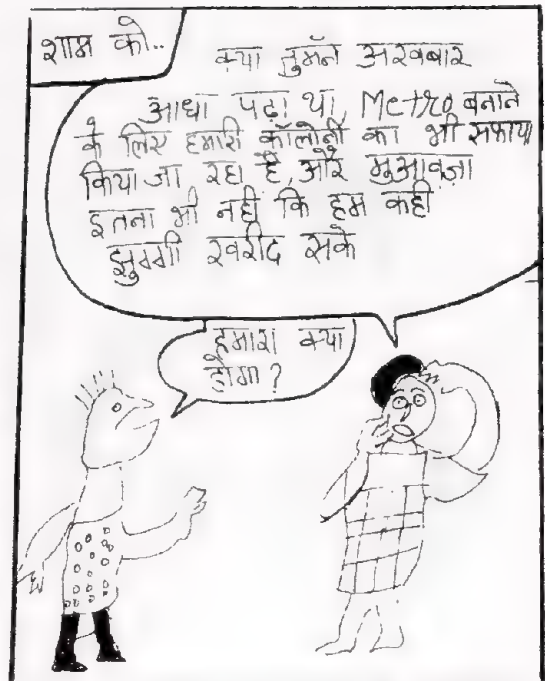 शाम को..
क्या तुमने अखबार
आधा पढ़ा था, Metro बनाने
के लिए हमारी कॉलोनी का भी सफाया
किया जा रहा है, और मुआवज़ा
इतना भी नहीं कि हम कहीं
झुग्गी खरीद सके
हमारा क्या
होगा?